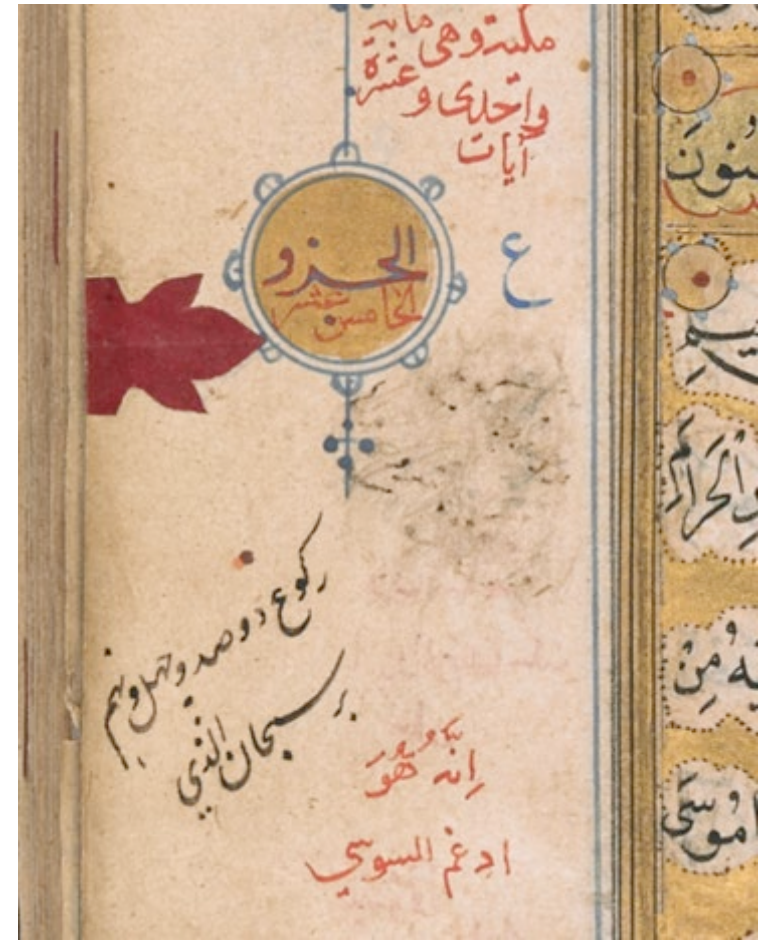 مكية وهي مائة
واحدى و عشرة
أيات
الجزو
الخامس عشر
ع
ركوع دوصد و چهل و نهم
بر سبحان الذي
اِنَّهُ هُوَ
ادغم السوسي
نُونَ
وِالْحَرَامِ
مِنْ
مُوسَى